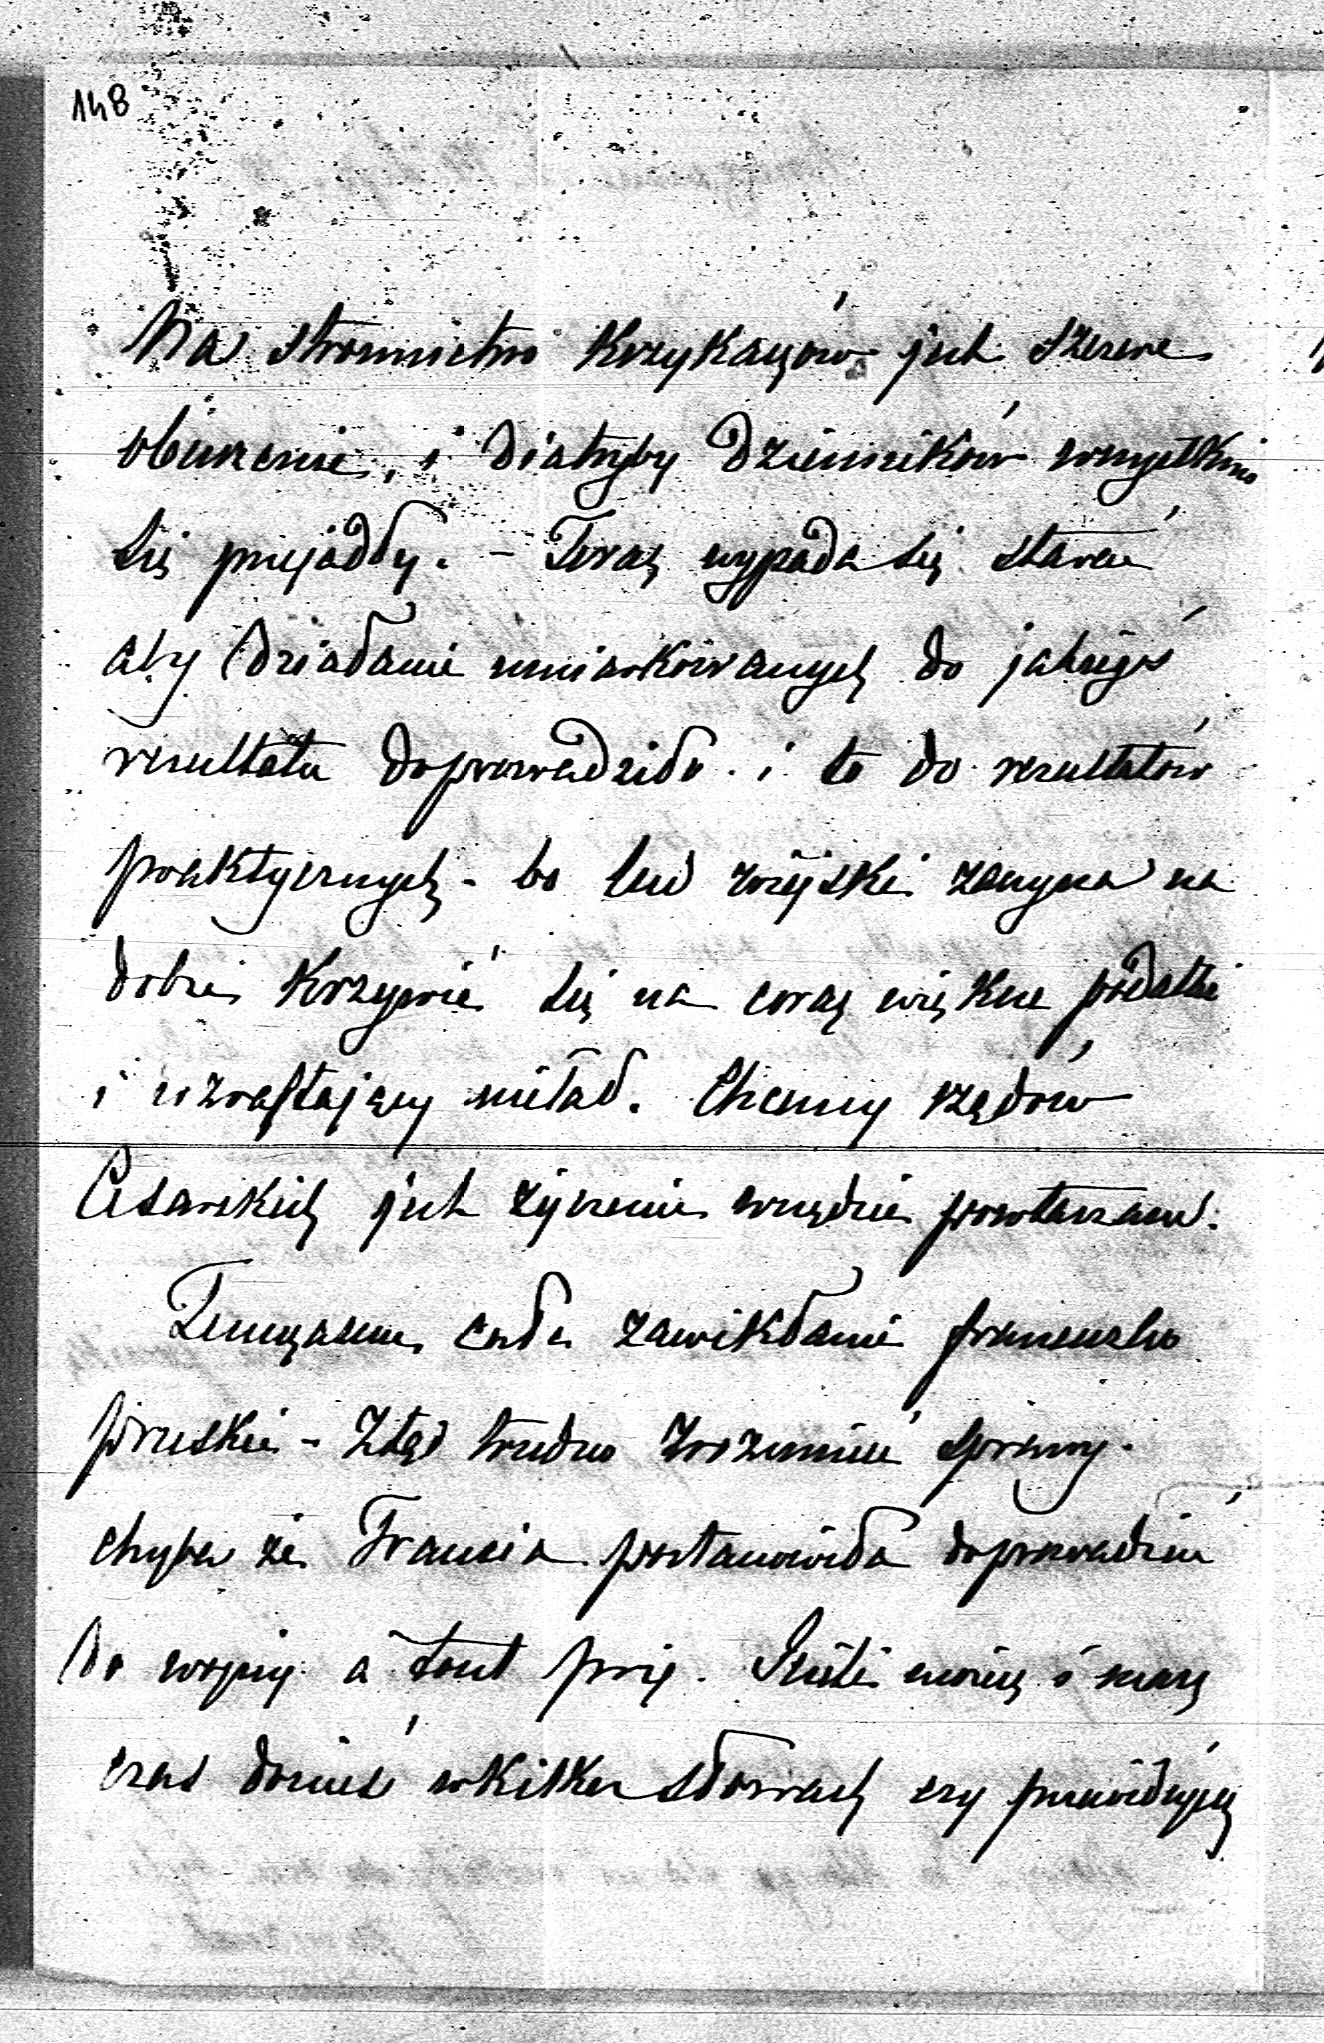 148
Na stronnictwo Krzykaczów jest szczere
oburzenie, i diatryby dzienników wszystkim
się przejadły. – Teraz wypada się starać
aby działanie umiarkowanych do jakiegoś
rezultatu doprowadziło i to do rezultatów
praktycznych – bo lud wiejski zaczyna na
dobre Krzywić się na coraz większe podatki
i wzrastający nieład. Chcemy rządów
Cesarskich jest życzenie wszędzie powtarzane.
Tymczasem całe zawikłanie francusko
pruskie – Ztąd trudno zrozumieć sprawy.
chyba że Francia postanowiła doprowadzić
do wojny à tout prix. Jeżeli możesz i masz
czas donieś w kilku słowach czy przewidujesz